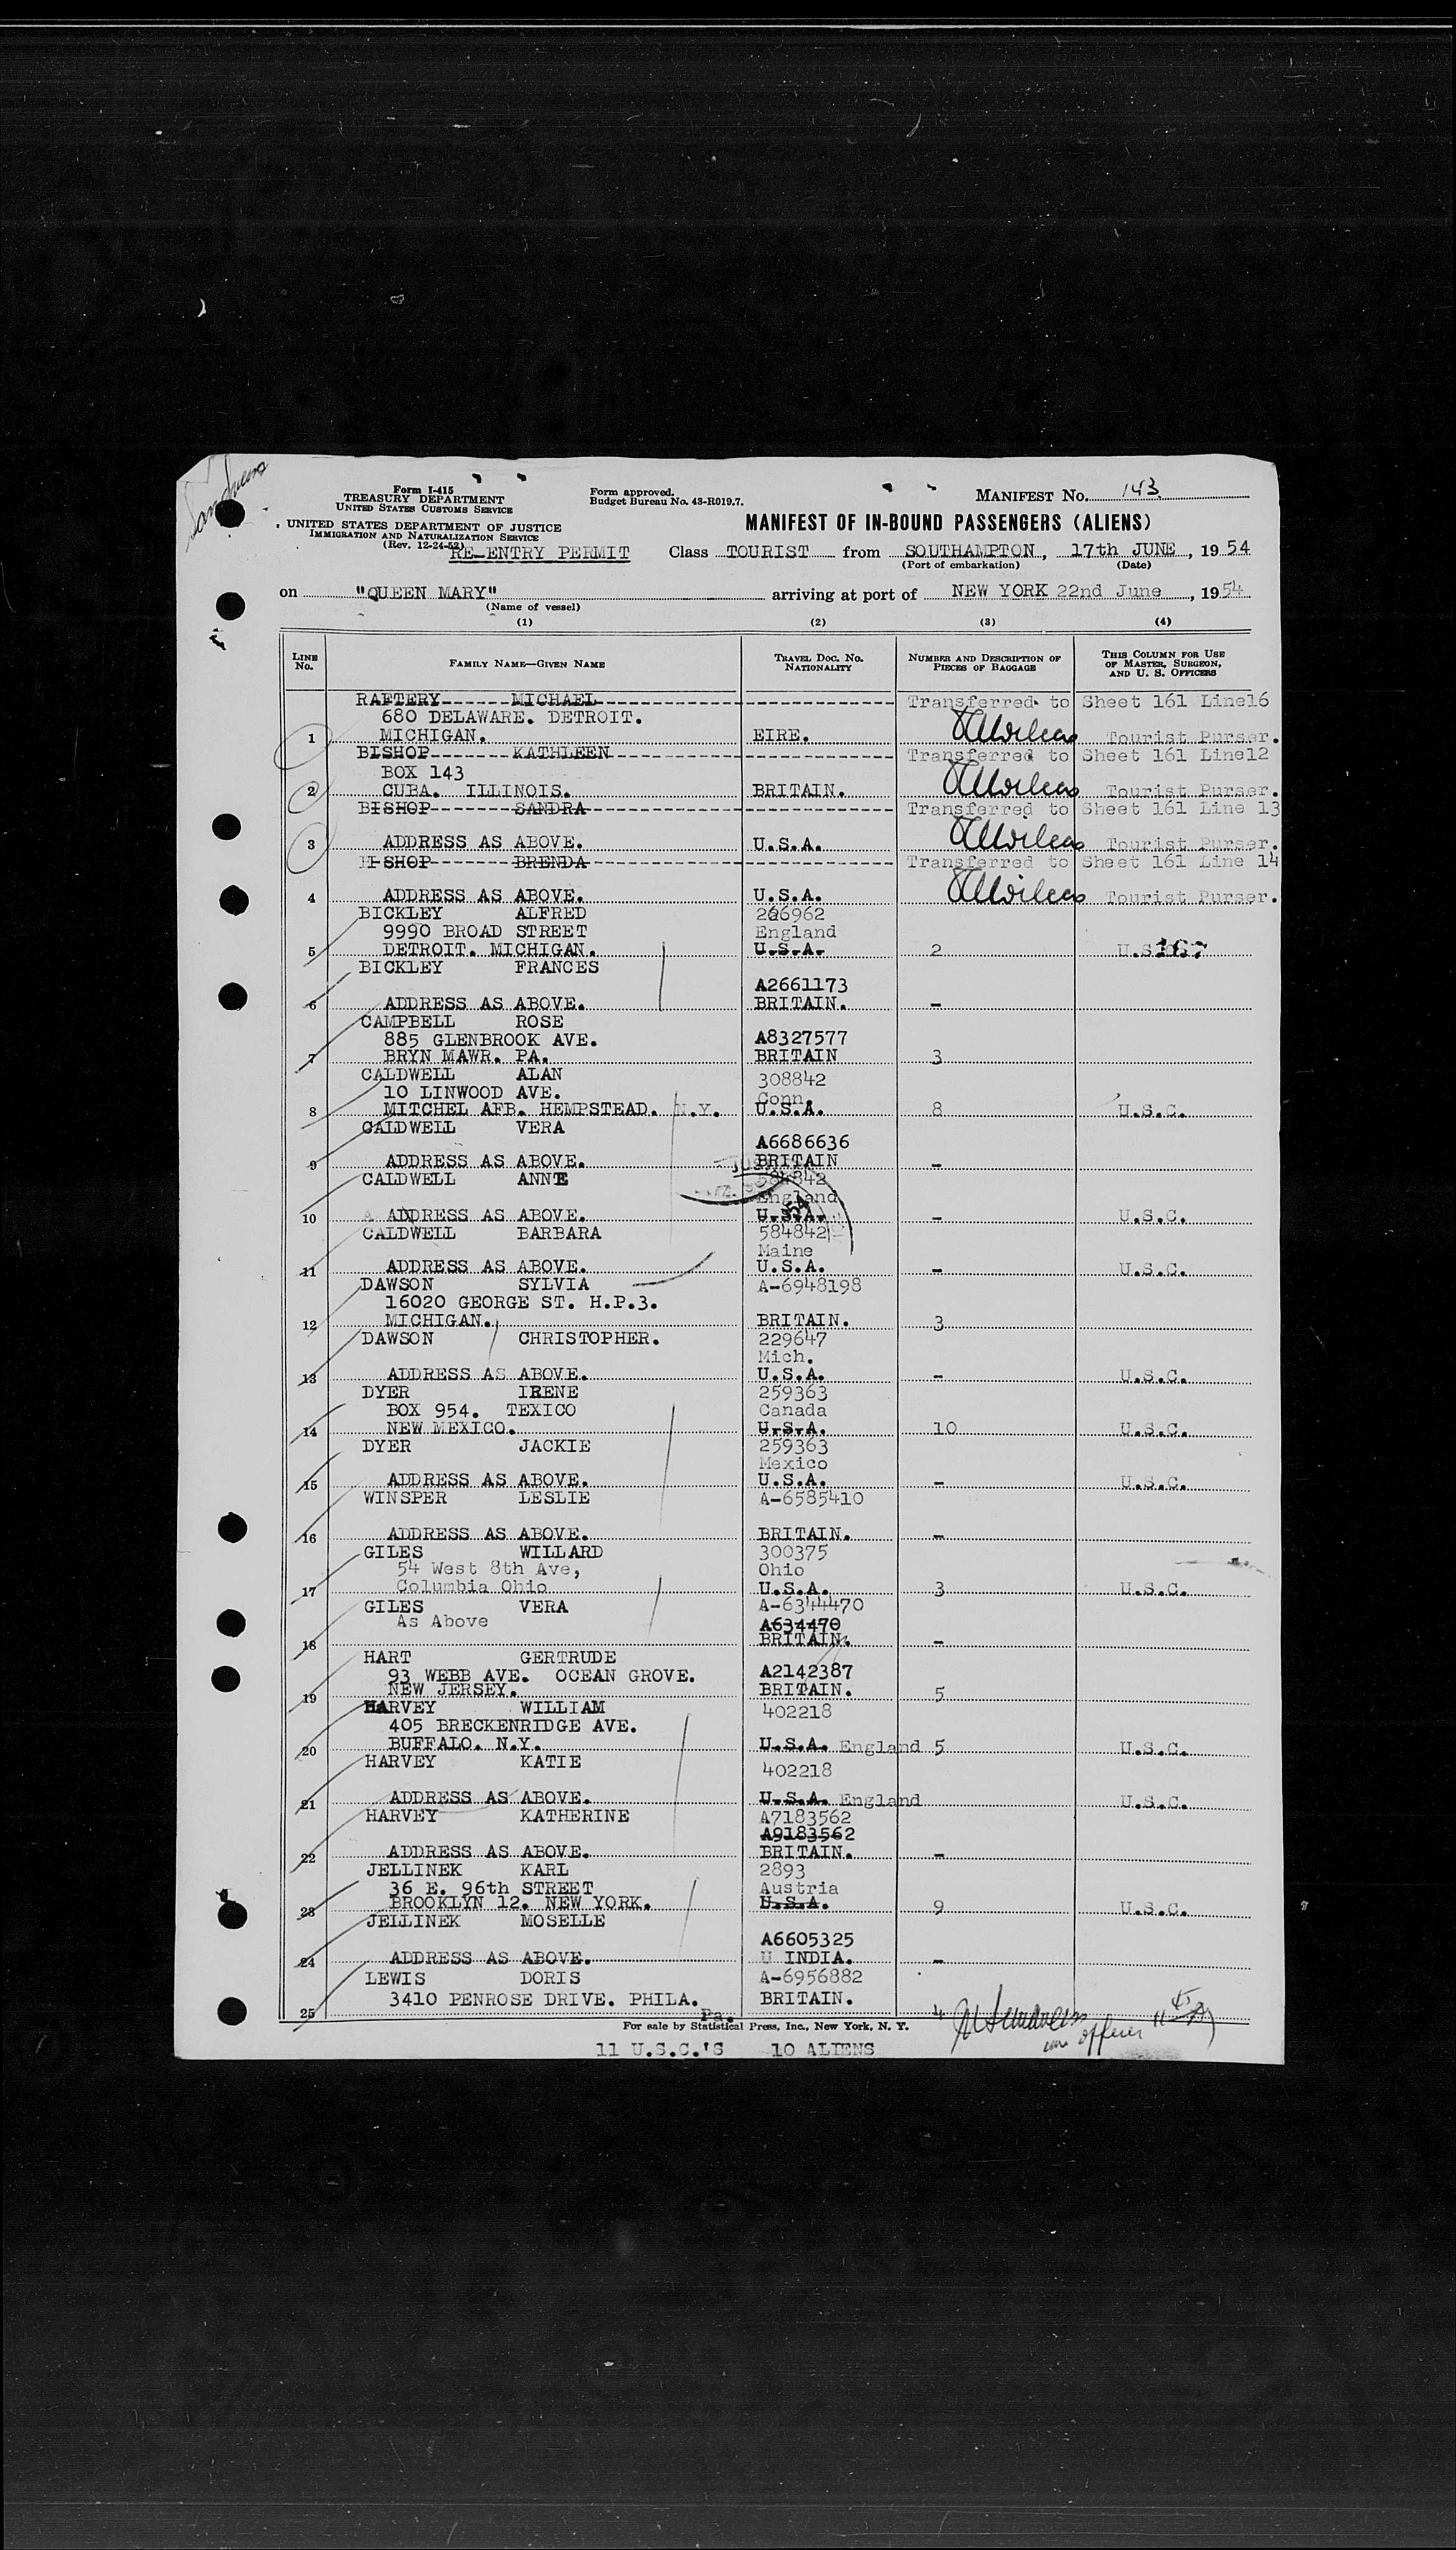 Form I-415
TREASURY DEPARTMENT
UNITED STATES CUSTOMS SERVICE
UNITED STATES DEPARTMENT OF JUSTICE
IMMIGRATION AND NATURALIZATION SERVICE
(Rev. 12-24-52)
Form approved.
Budget Bureau No. 43-R019.7.
MANIFEST NO. 143
MANIFEST OF IN-BOUND PASSENGERS (ALIENS)
RE-ENTRY PERMIT Class TOURIST from SOUTHAMPTON, 17th JUNE, 1954
(Port of embarkation) (Date)
on "QUEEN MARY" arriving at port of NEW YORK 22nd June, 1954
(Name of vessel)
(1) (2) (3) (4)
LINE NO. FAMILY NAME—GIVEN NAME TRAVEL DOC. NO. NATIONALITY NUMBER AND DESCRIPTION OF PIECES OF BAGGAGE THIS COLUMN FOR USE OF MASTER, SURGEON, AND U. S. OFFICERS
RAFTERY MICHAEL Transferred to Sheet 161 Line16
680 DELAWARE. DETROIT.
1 MICHIGAN. EIRE. Tourist Purser.
BISHOP KATHLEEN Transferred to Sheet 161 Line12
BOX 143
2 CUBA. ILLINOIS. BRITAIN. Tourist Purser.
BISHOP SANDRA Transferred to Sheet 161 Line 13
3 ADDRESS AS ABOVE. U.S.A. Tourist Purser.
BISHOP BRENDA Transferred to Sheet 161 Line 14
4 ADDRESS AS ABOVE. U.S.A. Tourist Purser.
BICKLEY ALFRED 226962
9990 BROAD STREET England
5 DETROIT. MICHIGAN. U.S.A. 2
BICKLEY FRANCES
A2661173
6 ADDRESS AS ABOVE. BRITAIN. -
CAMPBELL ROSE
885 GLENBROOK AVE. A8327577
7 BRYN MAWR. PA. BRITAIN 3
CALDWELL ALAN 308842
10 LINWOOD AVE. Conn.
8 MITCHEL AFB. HEMPSTEAD. N.Y. U.S.A. 8 U.S.C.
CALDWELL VERA
A6686636
9 ADDRESS AS ABOVE. BRITAIN -
CALDWELL ANNE 584842
England
10 ADDRESS AS ABOVE. U.S.A. - U.S.C.
CALDWELL BARBARA 584842
Maine
11 ADDRESS AS ABOVE. U.S.A. - U.S.C.
DAWSON SYLVIA A-6948198
16020 GEORGE ST. H.P.3.
12 MICHIGAN. BRITAIN. 3
DAWSON CHRISTOPHER. 229647
Mich.
13 ADDRESS AS ABOVE. U.S.A. - U.S.C.
DYER IRENE 259363
BOX 954. TEXICO Canada
14 NEW MEXICO. U.S.A. 10 U.S.C.
DYER JACKIE 259363
Mexico
15 ADDRESS AS ABOVE. U.S.A. - U.S.C.
WINSPER LESLIE A-6585410
16 ADDRESS AS ABOVE. BRITAIN. -
GILES WILLARD 300375
54 West 8th Ave, Ohio
17 Columbia Ohio U.S.A. 3 U.S.C.
GILES VERA A-6344470
As Above A634470
18 BRITAIN. -
HART GERTRUDE
93 WEBB AVE. OCEAN GROVE. A2142387
19 NEW JERSEY. BRITAIN. 5
HARVEY WILLIAM 402218
405 BRECKENRIDGE AVE.
20 BUFFALO. N.Y. U.S.A. England 5 U.S.C.
HARVEY KATIE 402218
21 ADDRESS AS ABOVE. U.S.A. England U.S.C.
HARVEY KATHERINE A7183562
A9183562
22 ADDRESS AS ABOVE. BRITAIN. -
JELLINEK KARL 2893
36 E. 96th STREET Austria
23 BROOKLYN 12. NEW YORK. U.S.A. 9 U.S.C.
JELLINEK MOSELLE
A6605325
24 ADDRESS AS ABOVE. U INDIA. -
LEWIS DORIS A-6956882
3410 PENROSE DRIVE. PHILA. BRITAIN.
25 Pa. 4
For sale by Statistical Press, Inc., New York, N. Y.
11 U.S.C.'S 10 ALIENS